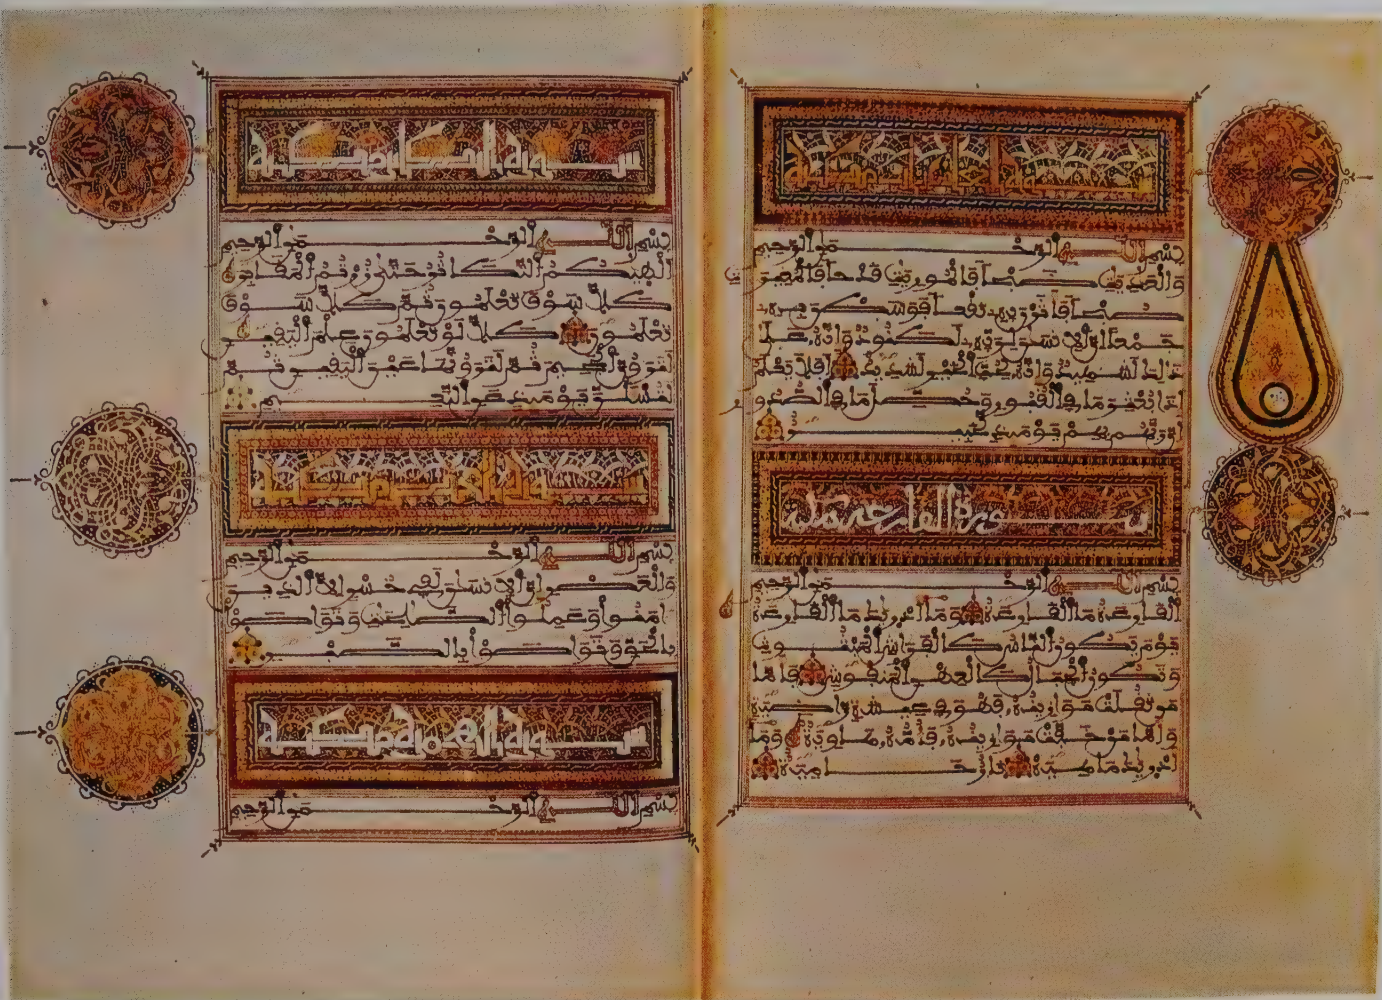 سورة والعاديات مكية
بسم الله الرحمن الرحيم
والعديت ضبحا فالموريت قدحا فالمغيرت
صبحا فأثرن به نقعا فوسطن به
جمعا إن الإنسن لربه لكنود وإنه على
ذلك لشهيد وإنه لحب الخير لشديد أفلا يعلم
إذا بعثر ما في القبور وحصل ما في الصدور
إن ربهم بهم يومئذ لخبير
سورة القارعة مكية
بسم الله الرحمن الرحيم
القارعة ما القارعة وما أدريك ما القارعة
يوم يكون الناس كالفراش المبثوث
وتكون الجبال كالعهن المنفوش فأما
من ثقلت موزينه فهو في عيشة راضية
وأما من خفت موزينه فأمه هاوية وما
أدريك ما هيه نار حامية
سورة التكاثر مكية
بسم الله الرحمن الرحيم
ألهيكم التكاثر حتى زرتم المقابر
كلا سوف تعلمون ثم كلا سوف
تعلمون كلا لو تعلمون علم اليقين
لترون الجحيم ثم لترونها عين اليقين ثم
لتسئلن يومئذ عن النعيم
سورة والعصر مكية
بسم الله الرحمن الرحيم
والعصر إن الإنسن لفي خسر إلا الذين
ءامنوا وعملوا الصلحت وتواصوا
بالحق وتواصوا بالصبر
سورة الهمزة مكية
بسم الله الرحمن الرحيم